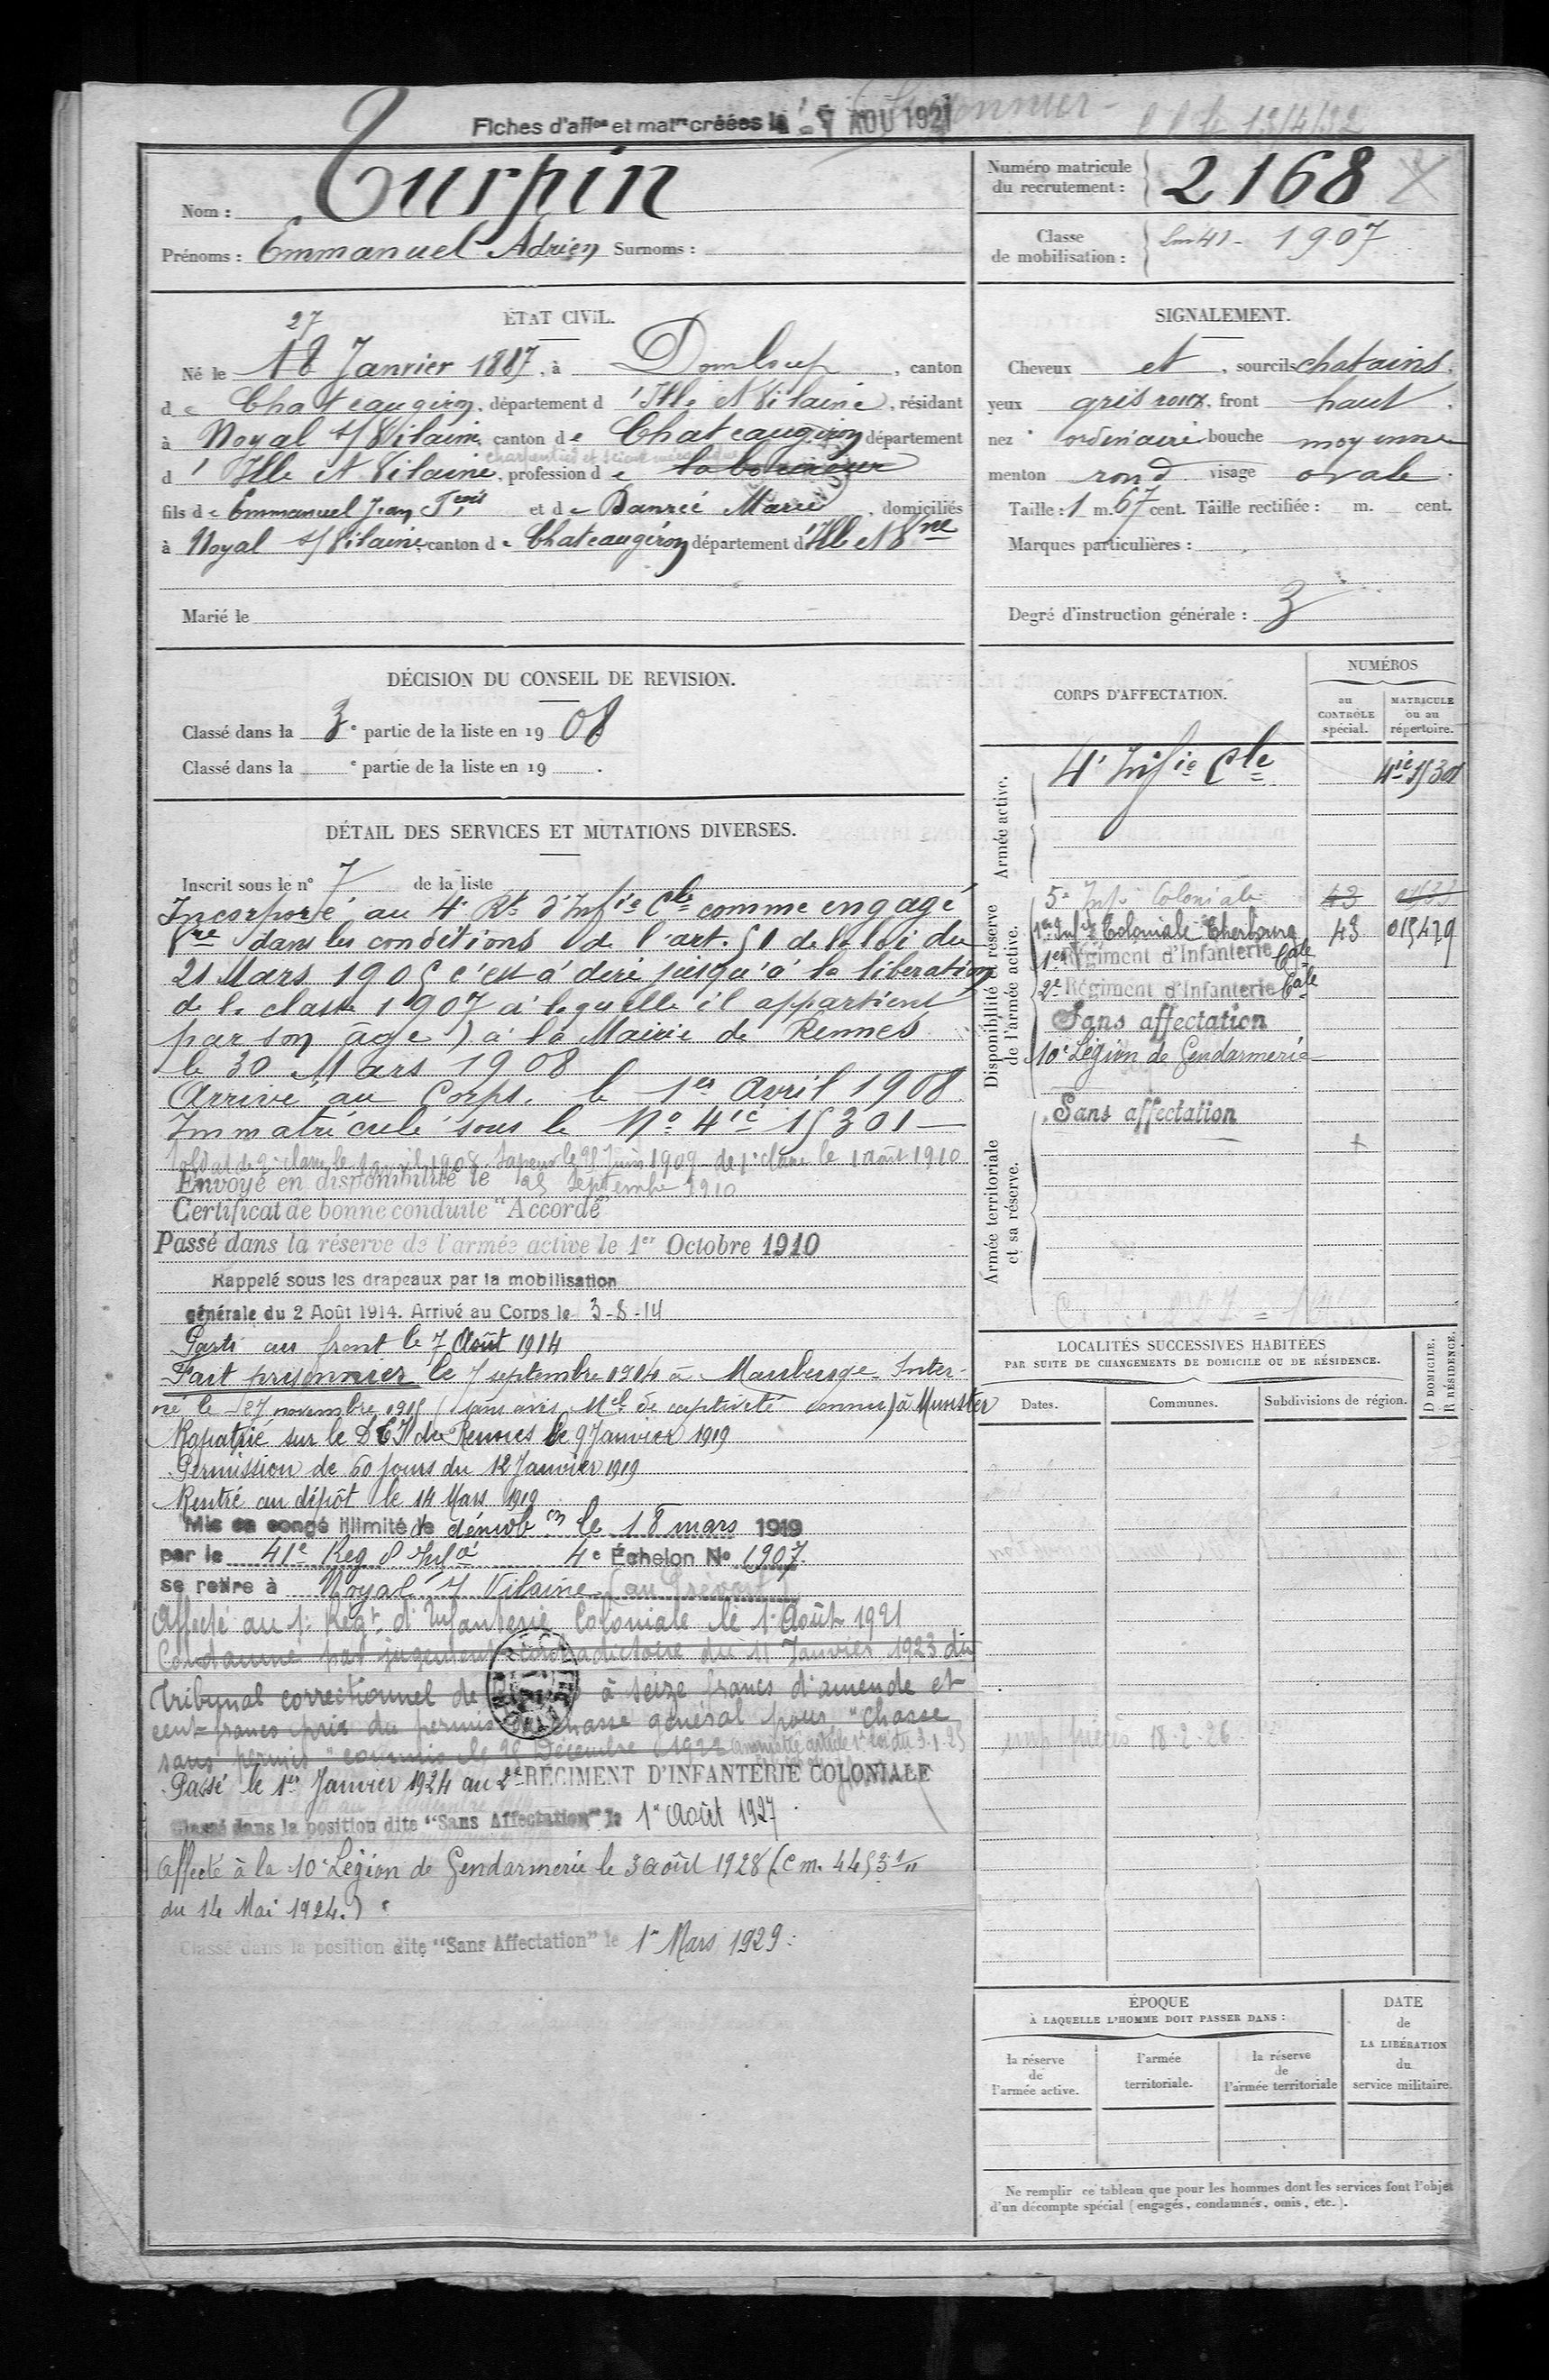 Fiches d'aff^on et mat^re créées le 7 AOU 1921
13/4/32
Nom : Turpin
Prénoms : Emmanuel Adrien Surnoms :
Numéro matricule du recrutement : 2168
Classe de mobilisation : 1907
ÉTAT CIVIL.
27
Né le 18 Janvier 1887, à Domloup, canton
de Chateaugiron, département d'Ille et Vilaine, résidant
à Noyal s/ Vilaine, canton de Chateaugiron département
charpentier et scieur mécanique
d'Ille et Vilaine, profession de laboureur
fils de Emmanuel Jean F^çois et de Danrée Marie, domiciliés
à Noyal s/ Vilaine, canton de Chateaugiron département d'Ille et V^ne
Marié le
SIGNALEMENT.
Cheveux et, sourcils chatains,
yeux gris roux, front haut.
nez ordinaire bouche moyenne
menton rond visage ovale.
Taille : 1 m. 67 cent. Taille rectifiée : m. cent.
Marques particulières :
Degré d'instruction générale : 3
DÉCISION DU CONSEIL DE REVISION.
Classé dans la 3e partie de la liste en 1908
Classé dans la e partie de la liste en 19 .
DÉTAIL DES SERVICES ET MUTATIONS DIVERSES.
Inscrit sous le n° 7 de la liste
Incorporé au 4e Rt d'Inf^ie C^le comme engagé
V^re dans les conditions de l'art. 51 de la loi du
21 Mars 1905 c'est à dire jusqu'à la libération
de la classe 1907 à laquelle il appartient
par son âge) à la Mairie de Rennes
le 30 Mars 1908
Arrivé au Corps. le 1er Avril 1908
Immatriculé sous le N° 4ic 15301
Soldat de 2e classe le 1 avril 1908. Sapeur le 25 Juin 1909 de 1e classe le 1 août 1910
Envoyé en disponibilité le 25 Septembre 1910
Certificat de bonne conduite "Accordé"
Passé dans la réserve de l'armée active le 1er Octobre 1910
Rappelé sous les drapeaux par la mobilisation
générale du 2 Août 1914. Arrivé au Corps le 3-8-14
Parti au front le 7 Août 1914
Fait prisonnier le 7 septembre 1914 à Maubeuge. Inter-
né le 27 novembre 1915 (sans avis à Munster
Rapatrié sur le D.E.I. de Rennes le 9 Janvier 1919
Permission de 60 jours du 12 Janvier 1919
Rentré au dépôt le 14 Mars 1919
Mis en congé illimité de démob^on le 18 mars 1919
par le 41e Reg d'Inf^ie 4e Échelon No 1907.
se retire à Noyal s/ Vilaine
Affecté au 1e Reg^t d'Infanterie Coloniale le 1e Août 1921
Condamné par jugement contradictoire du 11 Janvier 1923 du
Tribunal correctionnel de à seize francs d'amende et
cent francs prix du permis de chasse général pour "Chasse
sans permis" commis le 25 Décembre 1922 amnistié article 1er loi du 3.1.25
Passé le 1er Janvier 1924 au 2e RÉGIMENT D'INFANTERIE COLONIALE
Classé dans la position dite "Sans Affectation" le 1er Août 1927
Affecté à la 10e Légion de Gendarmerie le 3 août 1928 (C.m. 4453 1/11
du 14 Mai 1924.)
Classé dans la position dite "Sans Affectation" le 1er Mars 1929.
CORPS D'AFFECTATION.
NUMÉROS
au CONTRÔLE spécial.
MATRICULE ou au répertoire.
Armée active.
4e Inf^ie C^le 4ic 15301
Disponibilité et réserve de l'armée active.
5e Inf. Coloniale 43
1er Inf^ie Coloniale Cherbourg 43 015479
1er Régiment d'Infanterie C^ale
2e Régiment d'Infanterie C^ale
Sans affectation
10e Légion de Gendarmerie
Armée territoriale et sa réserve.
Sans affectation
LOCALITÉS SUCCESSIVES HABITÉES
PAR SUITE DE CHANGEMENTS DE DOMICILE OU DE RÉSIDENCE.
Dates.
Communes.
Subdivisions de région.
D DOMICILE.
R RÉSIDENCE.
18-2-26
ÉPOQUE
À LAQUELLE L'HOMME DOIT PASSER DANS :
la réserve de l'armée active.
l'armée territoriale.
la réserve de l'armée territoriale
DATE de LA LIBÉRATION du service militaire.
Ne remplir ce tableau que pour les hommes dont les services font l'objet
d'un décompte spécial (engagés, condamnés, omis, etc.).